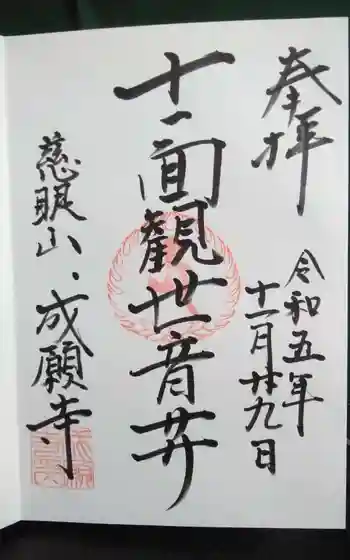 奉拝
令和五年
十一月廿九日
十一面観世音井
慈眼山・成願寺